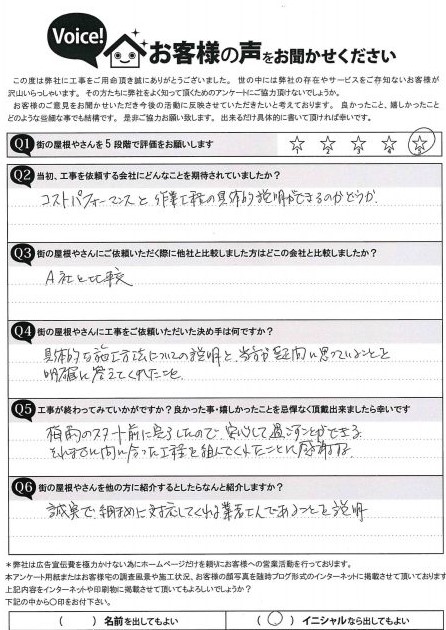 Voice!
お客様の声をお聞かせください
この度は弊社に工事をご用命頂き誠にありがとうございました。 世の中には弊社の存在やサービスをご存知ないお客様が
沢山いらっしゃいます。 その方たちに弊社をよく知って頂くためのアンケートにご協力頂けないでしょうか。
お客様のご意見をお聞かせいただき今後の活動に反映させていただきたいと考えております。 良かったこと、嬉しかったこと
どのような些細な事でも結構です。 是非ご協力お願い致します。 出来るだけ具体的に書いて頂ければ幸いです。
Q1 街の屋根やさんを5段階で評価をお願いします
1 2 3 4 5
Q2 当初、工事を依頼する会社にどんなことを期待されていましたか?
コストパフォーマンスと作業工程の具体的説明ができるのかどうか
Q3 街の屋根やさんにご依頼いただく際に他社と比較しました方はどこの会社と比較しましたか?
A社と比較
Q4 街の屋根やさんに工事をご依頼いただいた決め手は何ですか?
具体的な施工方法についての説明と、当方が疑問に思っていることを
明確に答えてくれたこと
Q5 工事が終わってみていかがですか?良かった事・嬉しかったことを忌憚なく頂戴出来ましたら幸いです
梅雨のスタート前に完了したので、安心して過ごすことができる
それまでに間に合った工程を組んでくれたことに感謝する
Q6 街の屋根やさんを他の方に紹介するとしたらなんと紹介しますか?
誠実で、細かに対応してくれる業者さんであることを説明
*弊社は広告宣伝費を極力かけない為にホームページだけを頼りにお客様への営業活動を行っております。
本アンケート用紙またはお客様宅の調査風景や施工状況、お客様の顔写真を随時ブログ形式のインターネットに掲載させて頂いております
上記内容をインターネットや印刷物に掲載させて頂いてもよろしいでしょうか?
下記の中から○印をお付下さい。
( ) 名前を出してもよい (○) イニシャルなら出してもよい